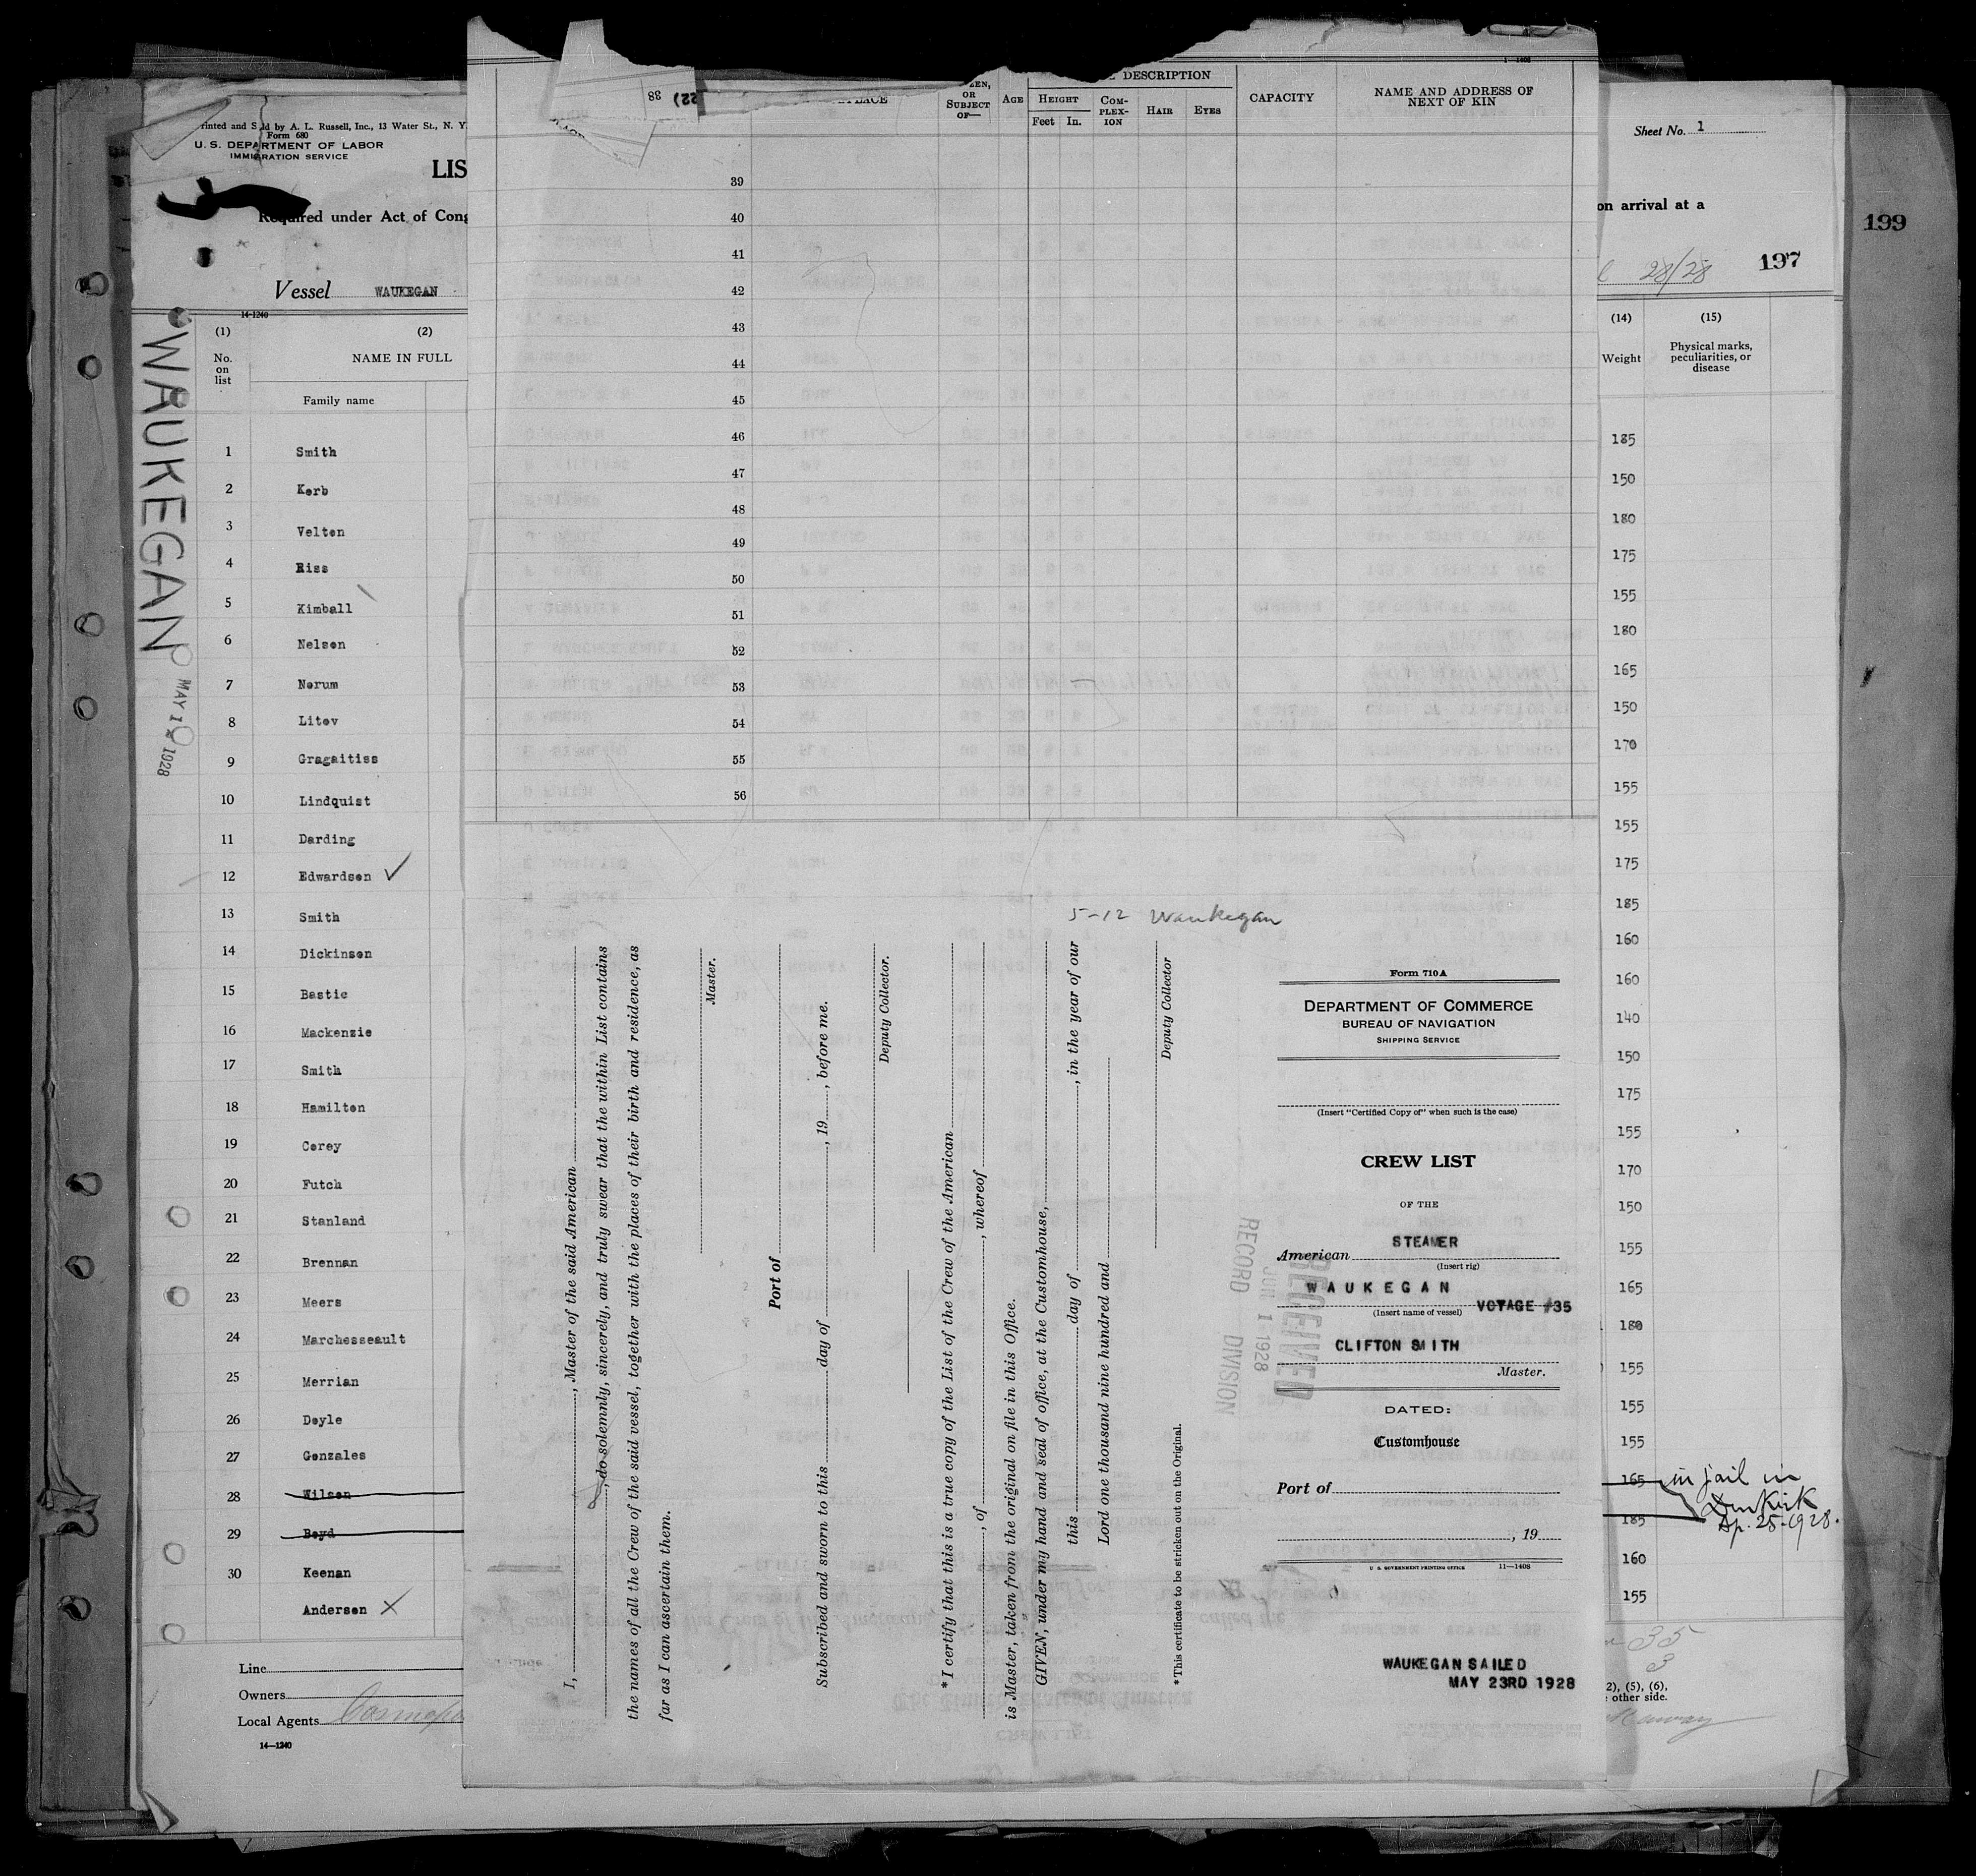 Form 680
U. S. DEPARTMENT OF LABOR
IMMIGRATION SERVICE
LIS
Required under Act of Cong
Vessel WAUKEGAN
14-1240
(1)
No. on list
(2)
NAME IN FULL
Family name
1 Smith
2 Kerb
3 Velten
4 Riss
5 Kimball
6 Nelsen
7 Nerum
8 Litev
9 Gragaitiss
10 Lindquist
11 Darding
12 Edwardsen
13 Smith
14 Dickinsen
15 Bastie
16 Mackenzie
17 Smith
18 Hamilten
19 Cerey
20 Futch
21 Stanland
22 Brennan
23 Meers
24 Marchesseault
25 Merrian
26 Deyle
27 Genzales
28 Wilsen
29 Beyd
30 Keenan
Andersen
Line
Owners
Local Agents
14—1240
WAUKEGAN
MAY 1 1928
38
22)
OR
SUBJECT
OF—
AGE
DESCRIPTION
HEIGHT
Feet In.
COM-
PLEX-
ION
HAIR
EYES
CAPACITY
NAME AND ADDRESS OF
NEXT OF KIN
39
40
41
42
43
44
45
46
47
48
49
50
51
52
53
54
55
56
5-12 Waukegan
I, , Master of the said American
, do solemnly, sincerely, and truly swear that the within List contains
the names of all the Crew of the said vessel, together with the places of their birth and residence, as
far as I can ascertain them.
Master.
Port of
Subscribed and sworn to this day of , 19 , before me.
Deputy Collector.
*I certify that this is a true copy of the List of the Crew of the American
, of , whereof
is Master, taken from the original on file in this Office.
GIVEN, under my hand and seal of office, at the Customhouse,
this day of , in the year of our
Lord one thousand nine hundred and
Deputy Collector
*This certificate to be stricken out on the Original.
RECEIVED
JUN 1 1928
RECORD DIVISION
Form 710A
DEPARTMENT OF COMMERCE
BUREAU OF NAVIGATION
SHIPPING SERVICE
(Insert "Certified Copy of" when such is the case)
CREW LIST
OF THE
American STEAMER
(Insert rig)
WAUKEGAN
(Insert name of vessel) VOYAGE #35
CLIFTON SMITH
Master.
DATED:
Customhouse
Port of
, 19
U. S. GOVERNMENT PRINTING OFFICE 11—1408
WAUKEGAN SAILED
MAY 23RD 1928
Sheet No. 1
on arrival at a
28/28 197
199
(14)
Weight
(15)
Physical marks,
peculiarities, or
disease
185
150
180
175
155
180
165
150
170
155
155
175
185
160
160
140
150
175
155
170
150
155
165
180
155
155
155
165
185
160
155
in jail in
Dunkirk
Ap. 25-1928.
35
3
2), (5), (6),
other side.